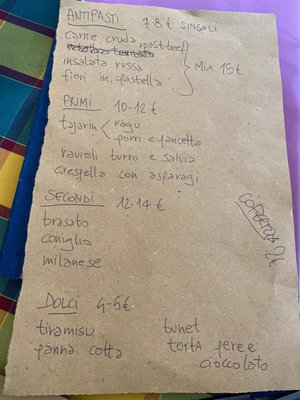 ANTIPASTI 7-8 € SINGOLI
carne cruda roast-beef
insalata russa
fiori in pastella
Mix 15 €
PRIMI 10-12 €
tajarin ragu
porri e pancetta
ravioli burro e salvia
crespella con asparagi
SECONDI 12-14 €
brasato
coniglio
milanese
COPERTO 2€
DOLCI 4-5€
tiramisu
panna cotta
bunet
torta pere e
cioccolato